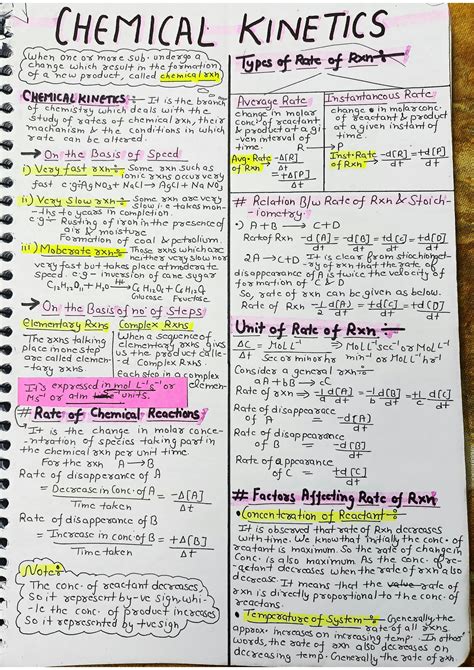 CHEMICAL KINETICS
When one or more sub. undergo a
change which result in the formation
of a new product, called chemical rxn
CHEMICAL KINETICS :- It is the branch
of chemistry which deals with the
study of rates of chemical rxn, their
machanism & the conditions in which
rate can be altered.
→ On the Basis of Speed
i) Very fast rxn :- Some rxn such as
ionic rxns occur very
fast e.g: AgNO3 + NaCl → AgCl + NaNO3
ii) Very Slow rxn :- Some rxn are very
slow i.e takes mon-
-ths to years in completion
e.g :- Rusting of iron in the presence of
air & moisture
Formation of coal & petrolium.
iii) Moderate rxn :- Those rxns which are
neither very slow nor
very fast but takes place at moderate
speed e.g - inversion of cane sugar
C12H22O11 + H2O → C6H12O6 + C6H12O6
Glucose Fructose
→ On the Basis of no. of Steps
Elementary Rxns Complex Rxns
The rxns taking When a sequence of
place in one step elementary rxns gives
are called elemen- us the product calle-
tary rxns d Complex Rxns.
Each step in a complex
elemen-
It is expressed in mol L⁻¹s⁻¹ or
Ms⁻¹ or atm units.
# Rate of Chemical Reactions
→ It is the change in molar conce-
-ntration of species taking part in
the chemical rxn per unit time.
For the rxn A → B
Rate of disapperance of A
= Decrease in Conc. of A / Time taken = -Δ[A] / Δt
Rate of disapperance of B
= Increase in conc. of B / Time taken = +Δ[B] / Δt
Note :
The conc. of reactant decreases
So it represent by -ve sign, whi-
-le the conc. of product increases
So it represented by +ve sign
Types of Rate of Rxn :-
Average Rate Instantaneous Rate
change in molar change in molar conc.
conc. of reactant of reactant & product
& product at a gi- at a given instant of
-ven interval of time.
time. R → P
Avg. Rate of Rxn = -Δ[R] / Δt = +Δ[P] / Δt
Inst. Rate of Rxn = -d[R] / dt = +d[P] / dt
# Relation B/w Rate of Rxn & Stoich-
-iometry :-
A + B → C + D
Rate of Rxn = -d[A] / dt = -d[B] / dt = +d[C] / dt = +d[D] / dt
2A → C + D It is clear from stiochiomet-
-ery of rxn that the rate of
disappearance of A is twice the velocity of
formation of C & D
So, rate of rxn can be given as below.
Rate of Rxn = -1/2 d[A] / dt = +d[C] / dt = +d[D] / dt
Unit of Rate of Rxn :-
ΔC / Δt = Mol L⁻¹ / Sec or min or hr ⇒ Mol L⁻¹ sec⁻¹ or Mol L⁻¹ min⁻¹ or Mol L⁻¹ hr⁻¹
Consider a general rxn :-
aA + bB → cC
Rate of rxn ⇒ -1/a d[A] / dt = -1/b d[B] / dt = +1/c d[C] / dt
Rate of disappearance of A = -d[A] / dt
Rate of disappearance of B = -d[B] / dt
Rate of appearance of C = +d[C] / dt
# Factors Affecting Rate of Rxn
• Concentration of Reactant :-
It is observed that rate of Rxn decreases
with time. We know that initially the conc. of
reatant is maximum. So the rate of change in
Conc. is also maximum As the conc. of re-
-actant decreases when the rate of rxn also
decrease. It means that the rate of
rxn is directly proportional to the conc. of
reactants.
• Temperature of System :- Generally, the
rate of all rxns
approx. increases on increasing temp. In other
words, the rate of rxn also decreases on
decreasing temp. Generally, the rate of rxn